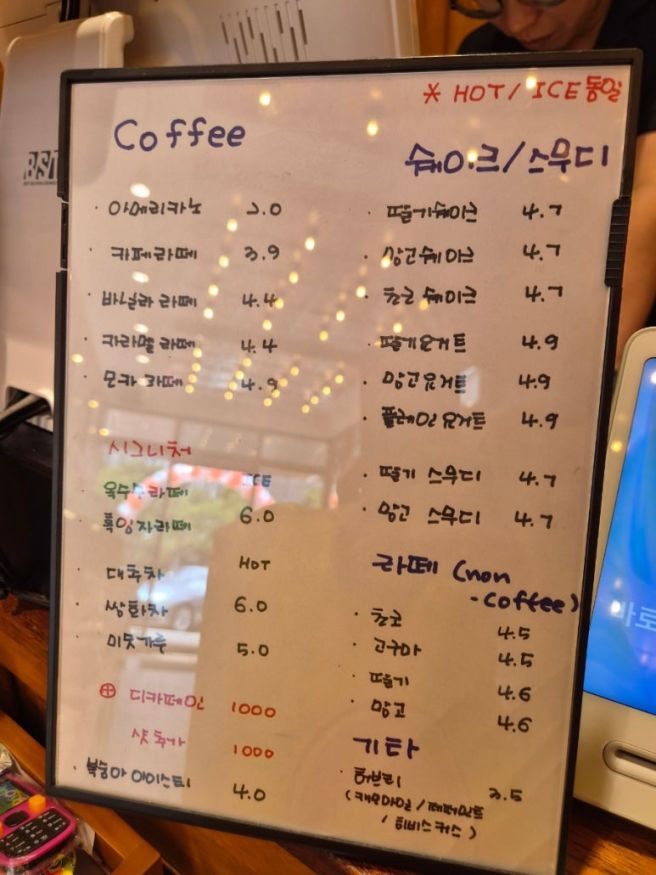 * HOT / ICE 동일
Coffee
· 아메리카노 2.0
· 카페라떼 3.9
· 바닐라 라떼 4.4
· 카라멜 라떼 4.4
· 모카 라떼 4.9
시그니처
· 옥수수라떼 ICE
· 흑임자라떼 6.0
· 대추차 HOT
· 쌍화차 6.0
· 미숫가루 5.0
⊕ 디카페인 1000
샷 추가 1000
· 복숭아 아이스티 4.0
쉐이크/스무디
· 딸기쉐이크 4.7
· 망고쉐이크 4.7
· 초코 쉐이크 4.7
· 딸기요거트 4.9
· 망고요거트 4.9
· 플레인 요거트 4.9
· 딸기 스무디 4.7
· 망고 스무디 4.7
라떼 (non
-coffee)
· 초코 4.5
· 고구마 4.5
· 딸기 4.6
· 망고 4.6
기타
· 허브티 3.5
(캐모마일 / 페퍼민트
/ 히비스커스)